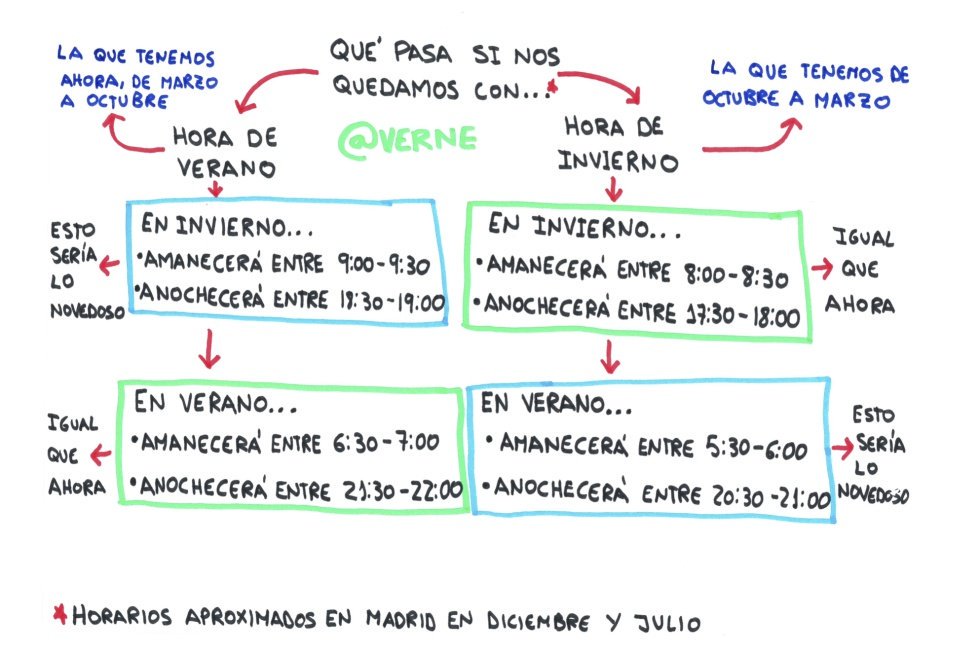 QUÉ PASA SI NOS
QUEDAMOS CON...*
@VERNE
LA QUE TENEMOS
AHORA, DE MARZO
A OCTUBRE
HORA DE
VERANO
LA QUE TENEMOS DE
OCTUBRE A MARZO
HORA DE
INVIERNO
ESTO
SERÍA
LO
NOVEDOSO
EN INVIERNO...
•AMANECERÁ ENTRE 9:00-9:30
•ANOCHECERÁ ENTRE 18:30-19:00
EN INVIERNO...
•AMANECERÁ ENTRE 8:00-8:30
•ANOCHECERÁ ENTRE 17:30-18:00
IGUAL
QUE
AHORA
IGUAL
QUE
AHORA
EN VERANO...
•AMANECERÁ ENTRE 6:30-7:00
•ANOCHECERÁ ENTRE 21:30-22:00
EN VERANO...
•AMANECERÁ ENTRE 5:30-6:00
•ANOCHECERÁ ENTRE 20:30-21:00
ESTO
SERÍA
LO
NOVEDOSO
*HORARIOS APROXIMADOS EN MADRID EN DICIEMBRE Y JULIO